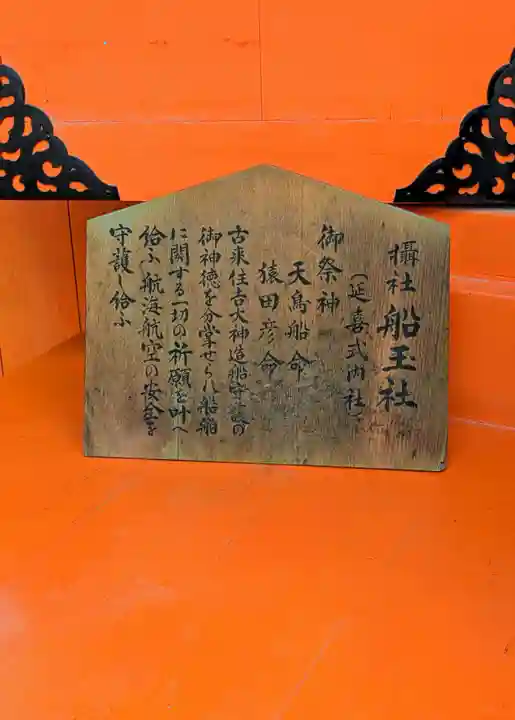 攝社船玉社
(延喜式内社)
御祭神
天鳥船命
猿田彦命
古来住吉大神造船守護の
御神徳を分掌せられ船舶
に関する一切の祈願を叶へ
給ふ航海航空の安全を
守護し給ふ